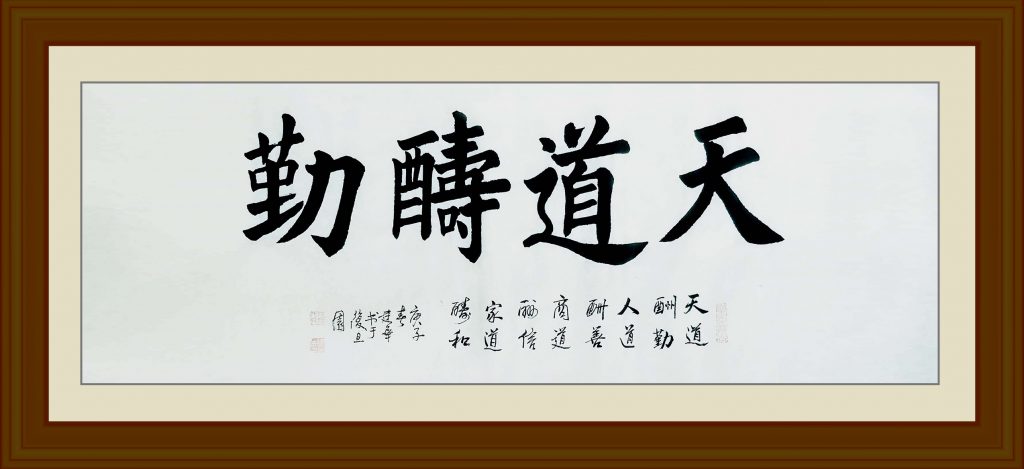 天道醻勤
天道
酬勤
人道
酬善
商道
酬信
家道
醻和
庚子
春
建華
书于
復旦
園